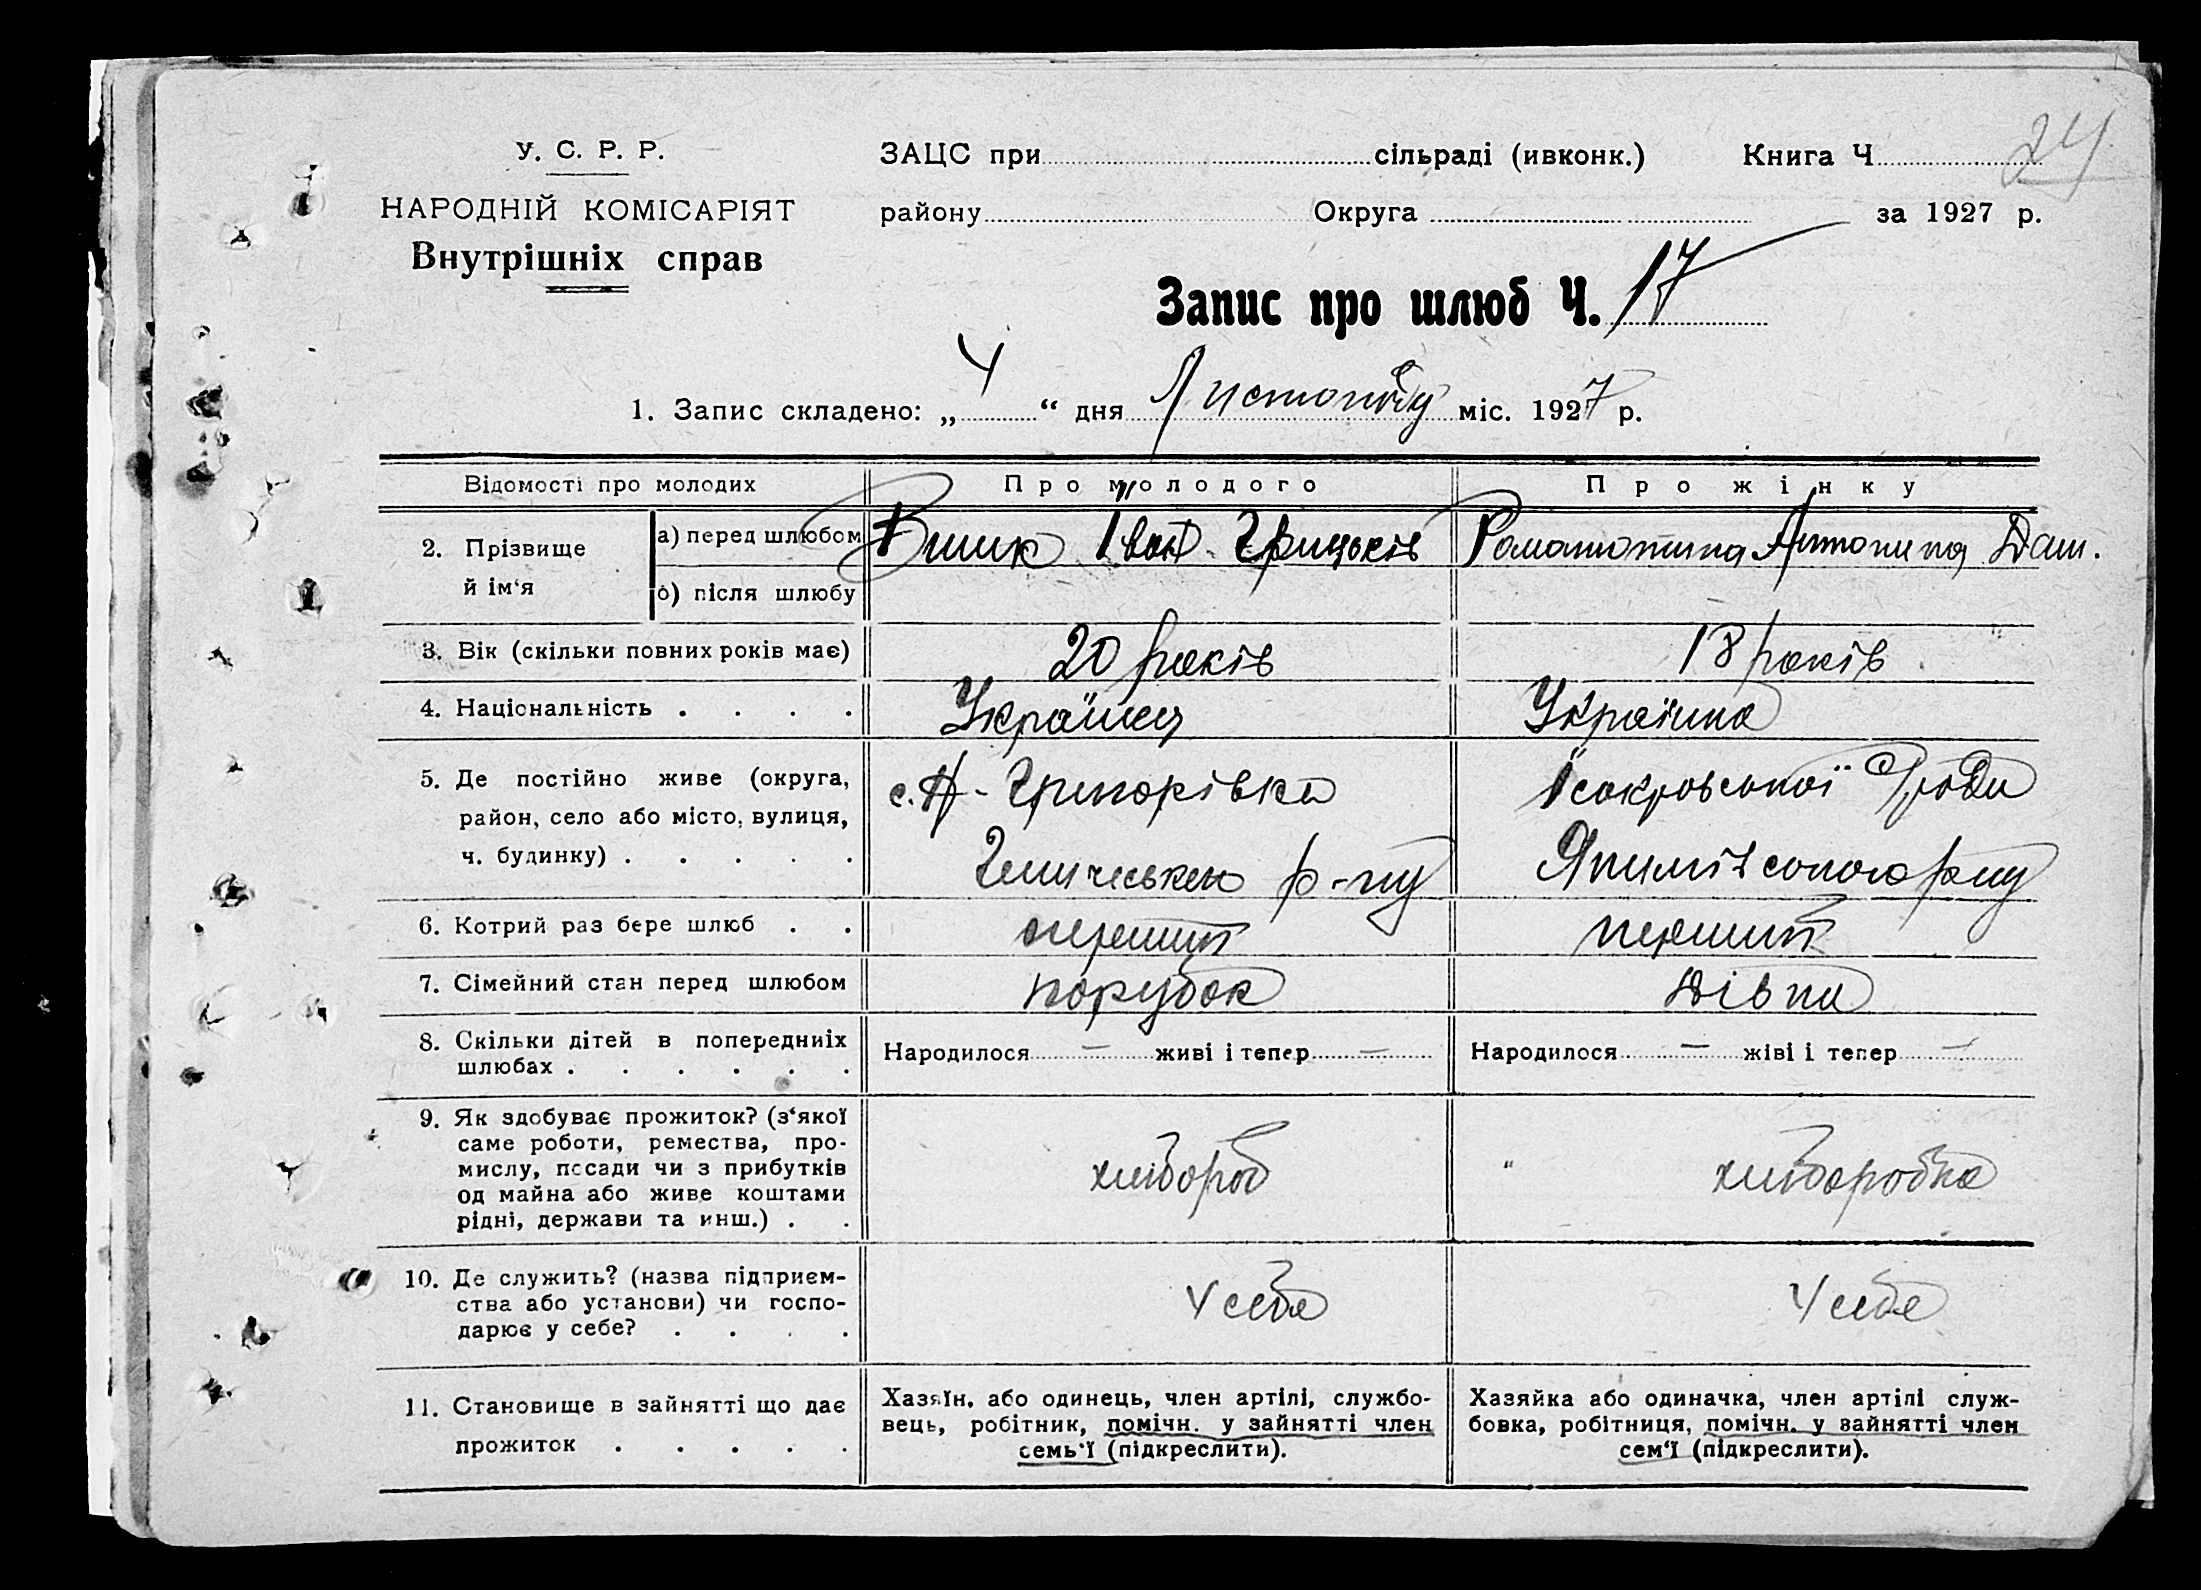 24
У. С. Р. Р.
НАРОДНІЙ КОМІСАРІЯТ
Внутрішніх справ
ЗАЦС при сільраді (ивконк.) Книга Ч
району Округа за 1927 р.
Запис про шлюб Ч. 17
1. Запис складено: „ 4 “ дня Листопаду міс. 1927 р.
Відомості про молодих Про молодого Про жінку
2. Прізвище й ім‘я
а) перед шлюбом Іван Грицьків Антонина Дан.
б) після шлюбу
3. Вік (скільки повних років має) 20 років 18 років
4. Національність . . . . Українец Українка
5. Де постійно живе (округа, с. Н-Григорівка
район, село або місто, вулиця,
ч. будинку) . . . . . Генического р-ну
6. Котрий раз бере шлюб . . перший перший
7. Сімейний стан перед шлюбом парубок дівка
8. Скільки дітей в попередніх Народилося — живі і тепер — Народилося — жіві і тепер —
шлюбах . . . . . .
9. Як здобуває прожиток? (з‘якої
саме роботи, ремества, про-
мислу, посади чи з прибутків хлібороб " хліборобка
од майна або живе коштами
рідні, держави та инш.) . .
10. Де служить? (назва підприєм-
ства або установи) чи госпо- У себе У себе
дарює у себе? . . . .
11. Становище в зайнятті що дає
прожиток . . . . .
Хазяїн, або одинець, член артілі, службо-
вець, робітник, помічн. у зайнятті член
семь‘ї (підкреслити).
Хазяйка або одиначка, член артілі служ-
бовка, робітниця, помічн. у зайнятті член
сем‘ї (підкреслити).